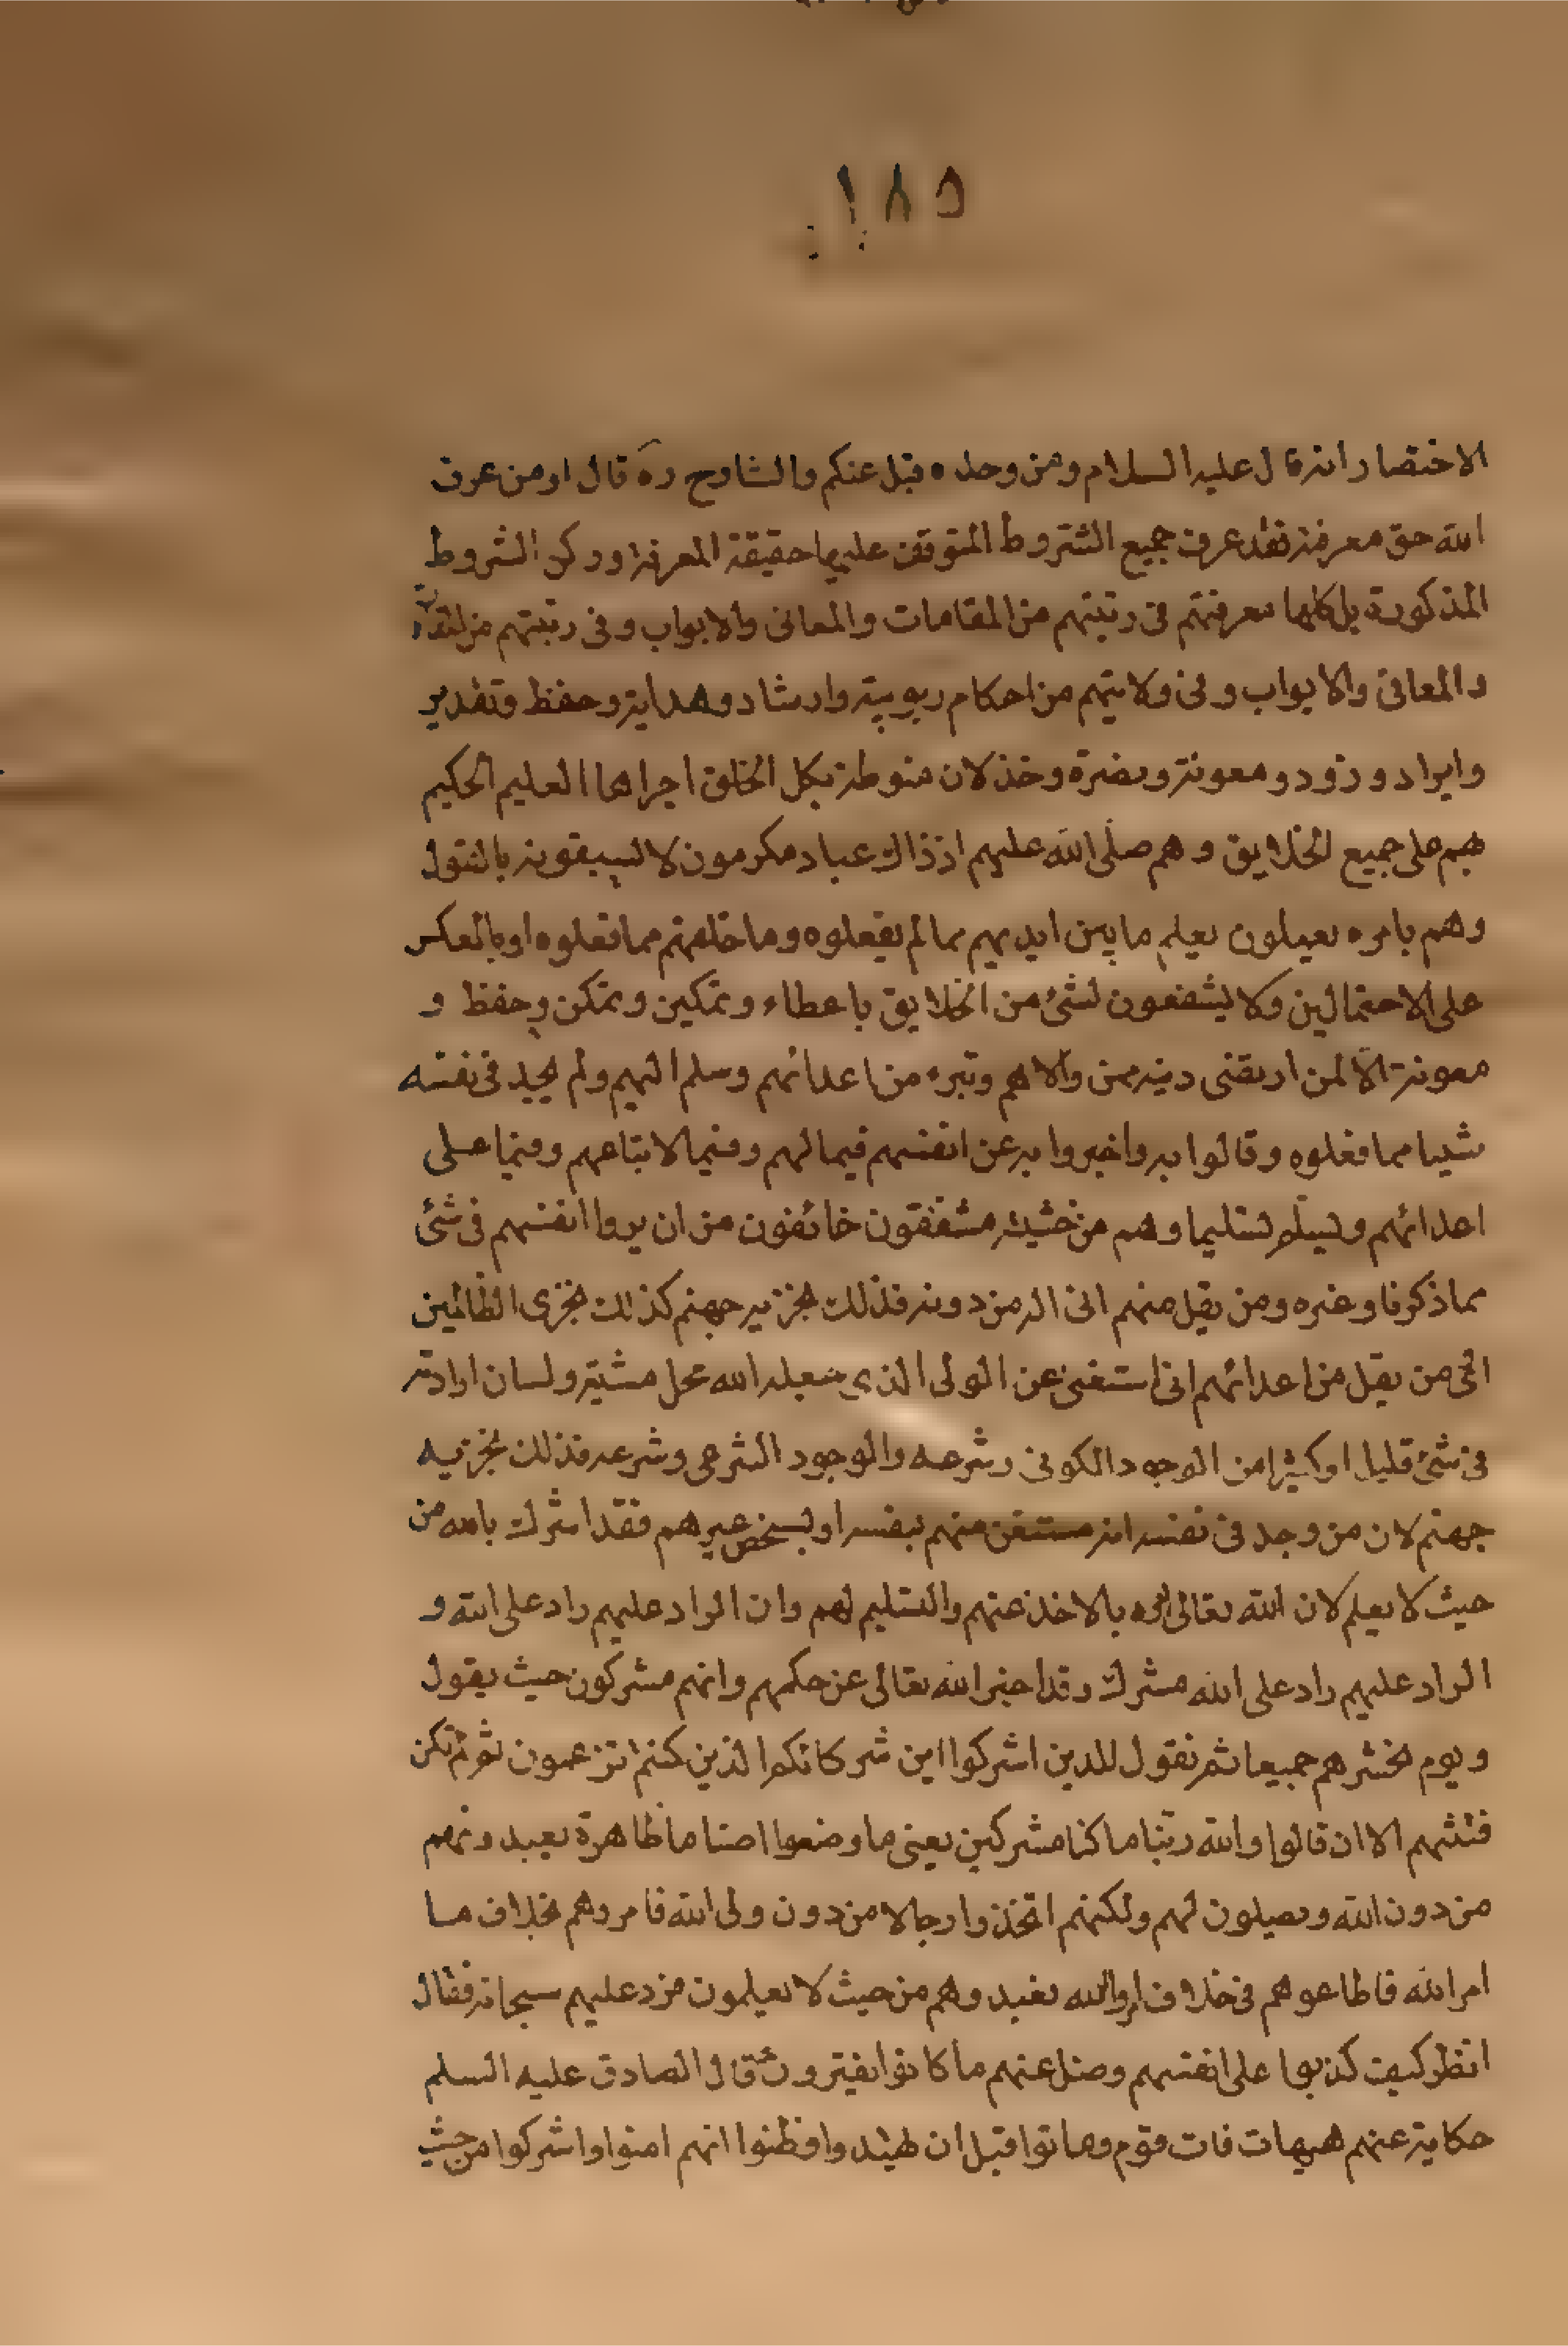 ١٨٥
الاختصار انه قال عليه السلام ومن وحده قبل عنكم والشارح ره قال او من عرف
الله حق معرفته فقد عرف جميع الشروط المتوقف عليها حقيقة المعرفة وركن الشروط
المذكورة بل كلها معرفتهم فى رتبتهم من المقامات والمعانى والابواب وفى رتبتهم من
والمعانى والابواب وفى ولايتهم من احكام ربوبية وارشاد وهداية وحفظ وتقدير
وايراد وذود ومعونة ونصرة وخذلان منوطة بكل الخلق اجراها العليم الحكيم
بهم على جميع الخلايق وهم صلى الله عليهم اذ ذاك عباد مكرمون لا يسبقونه بالقول
وهم بامره يعملون يعلم ما بين ايديهم مما لم يفعلوه وما خلفهم مما فعلوه او بالعكس
على الاحتمالين ولا يشفعون لشئ من الخلايق باعطاء وتمكين وتمكن وحفظ و
معونة الا لمن ارتضى دينه ممن والاهم وتبرء من اعدائهم وسلم اليهم ولم يجد فى نفسه
شيئا مما فعلوه وقالوا به واخبروا به عن انفسهم فيما لهم وفيما لاتباعهم وفيما على
اعدائهم ويسلم تسليما وهم من خشيته مشفقون خائفون من ان يروا انفسهم فى شئ
مما ذكرنا وغيره ومن يقل منهم انى اله من دونه فذلك نجزيه جهنم كذلك نجزى الظالمين
اى من يقل من اعدائهم انى استغنى عن الولى الذى جعله الله محل مشيته ولسان ارادته
فى شئ قليل او كثير من الوجود الكونى وشرعه والوجود الشرعى وشرعه فذلك نجزيه
جهنم لان من وجد فى نفسه انه مستغن منهم بنفسه او بشخص غيرهم فقد اشرك بالله من
حيث لا يعلم لان الله تعالى امره بالاخذ عنهم والتسليم لهم وان الراد عليهم راد على الله و
الراد عليهم راد على الله مشرك وقد اخبر الله تعالى عن حكمهم وانهم مشركون حيث يقول
ويوم نحشرهم جميعا ثم نقول للذين اشركوا اين شركائكم الذين كنتم تزعمون ثم لم تكن
فتنتهم الا ان قالوا والله ربنا ما كنا مشركين يعنى ما وضعوا اصناما ظاهرة يعبدونهم
من دون الله ويصلون لهم ولكنهم اتخذوا رجالا من دون ولى الله فامروهم بخلاف ما
امر الله فاطاعوهم فى خلاف امر الله بعبد وهم من حيث لا يعلمون فرد عليهم سبحانه فقال
انظر كيف كذبوا على انفسهم وضل عنهم ما كانوا يفترون قال الصادق عليه السلم
حكاية عنهم هيهات فات قوم وماتوا قبل ان يهتدوا فظنوا انهم امنوا واشركوا من حيث